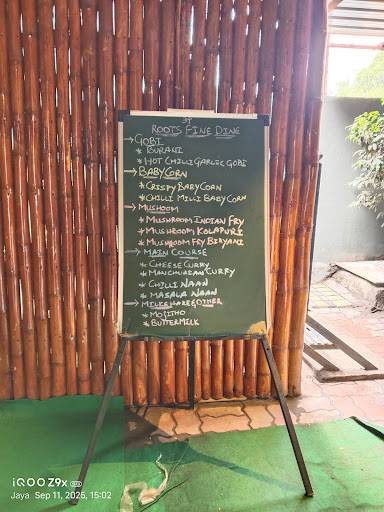 3T
ROOTS FINE DINE
→GOBI
* BURANI
* HOT CHILLI GARLIC GOBI
→BABY CORN
* CRISPY BABY CORN
* CHILLI MILLI BABY CORN
→MUSHOOM
* MUSHROOM INDIAN FRY
* MUSHROOM KOLAPURI
* MUSHROOM FRY BIRYANI
→MAIN COURSE
* CHEESE CURRY
* MANCHURIAN CURRY
* CHILLI NAAN
* MASALA NAAN
→MILKSHAKE & OTHER
* MOJITHO
* BUTTERMILK
iQOO Z9x 5G
Jaya Sep 11, 2025, 15:02